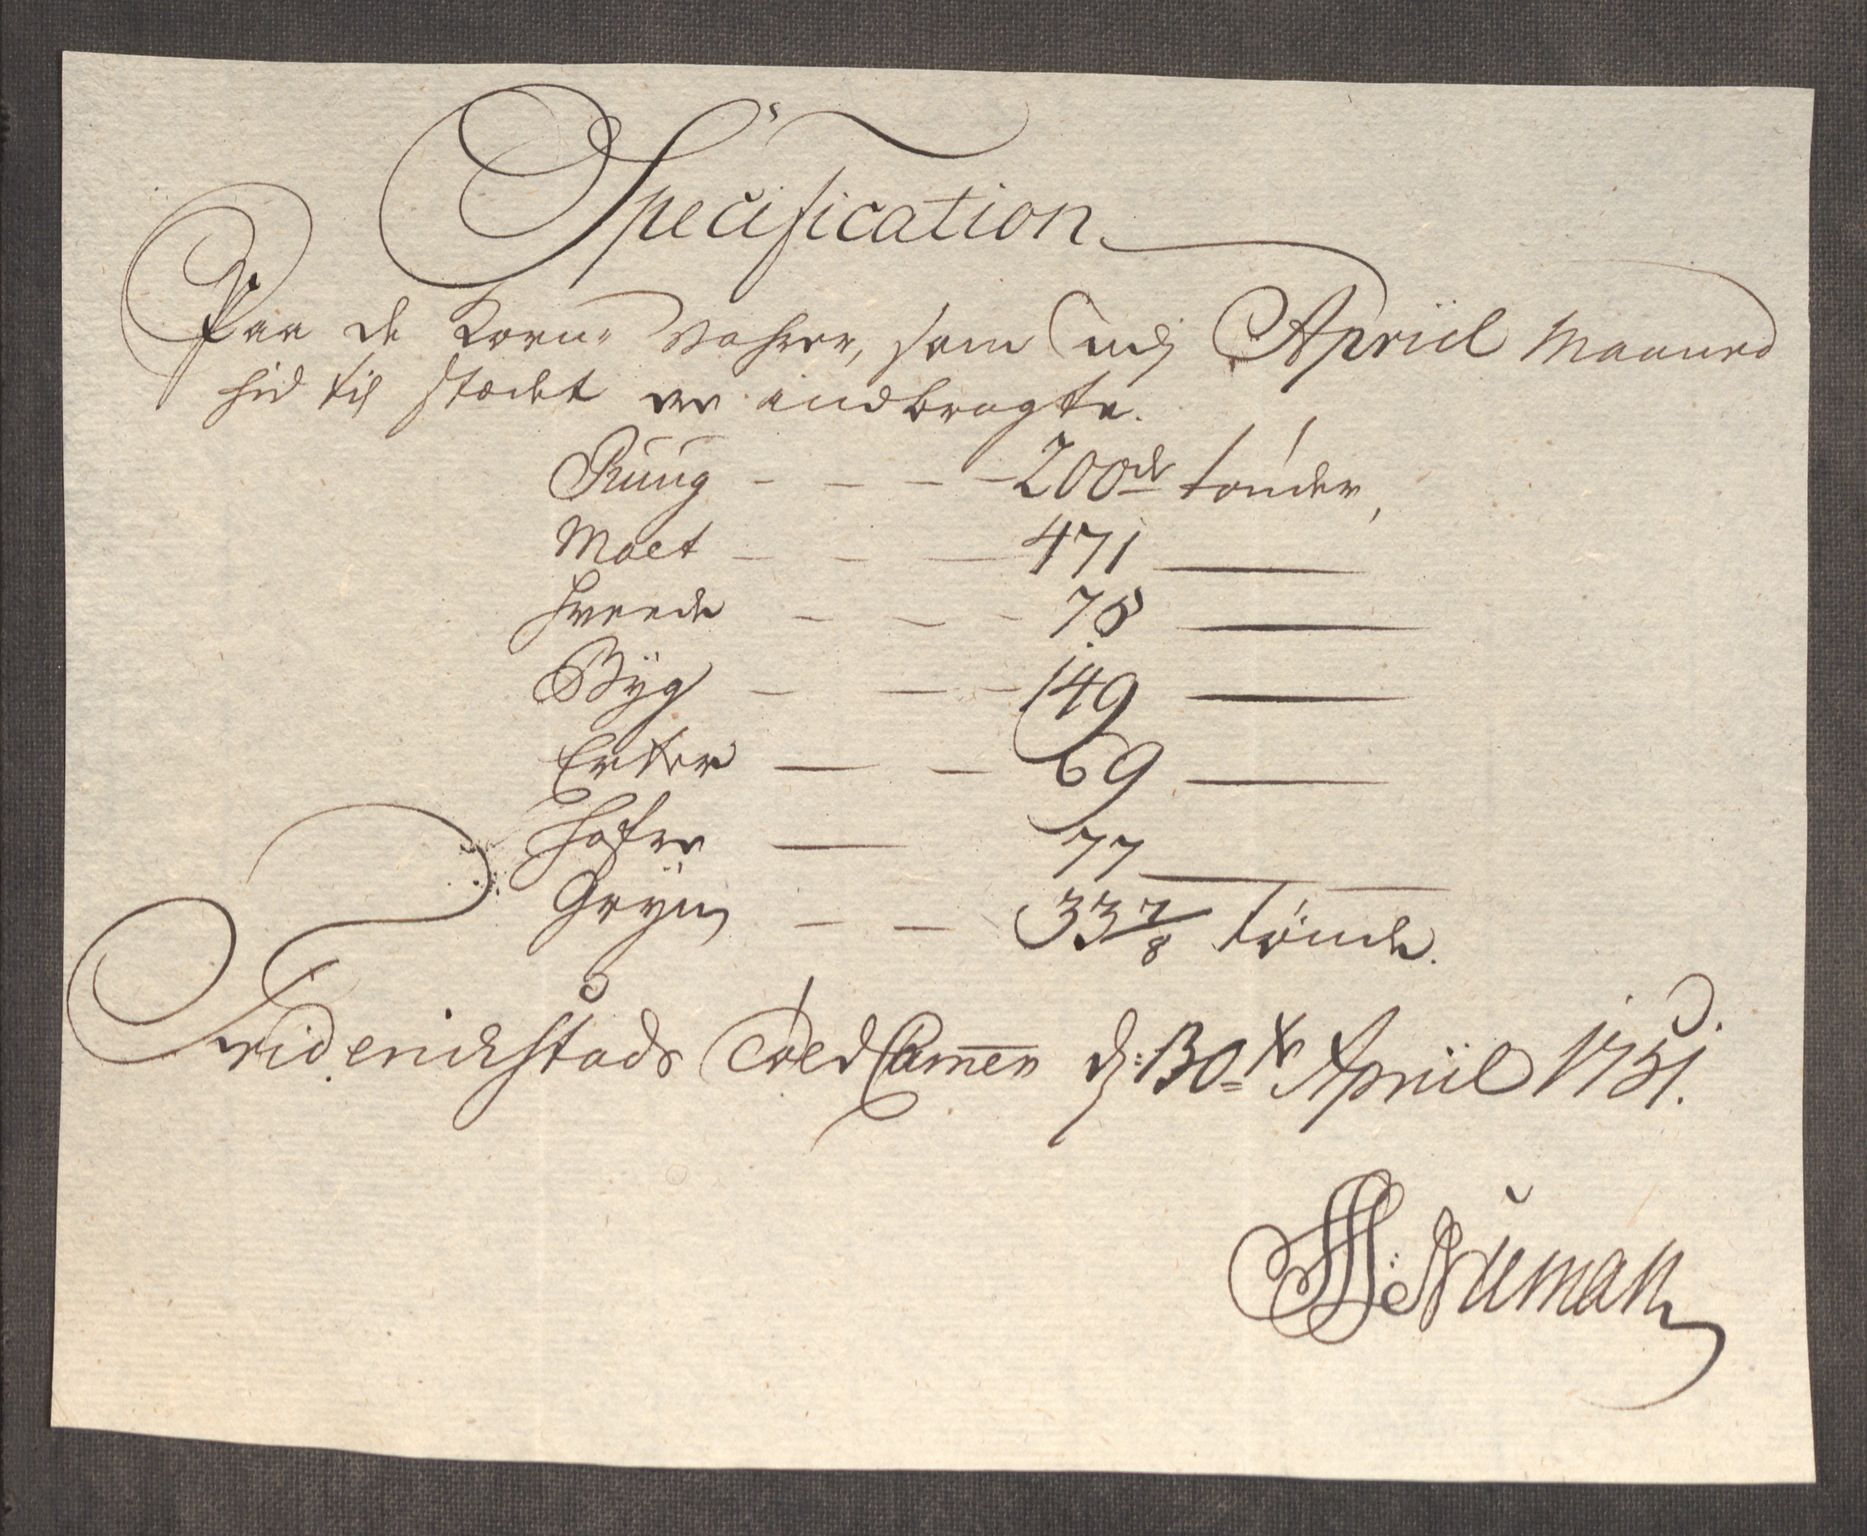 Specification
Paa de Korn- Vahrer, som udj Apriil Maaned
hid til stædet er indbragte.
Ruug - - - - 200de tønder,
Malt - - - 471 —
Hveede - - - 78 —
Byg - - - 149 —
Erter - - 69 —
Hafre - 77 —
Gryn - - 33 7/8 tønde.
Friderichstads Told Camer d: 30te Apriil 1751.
Numan